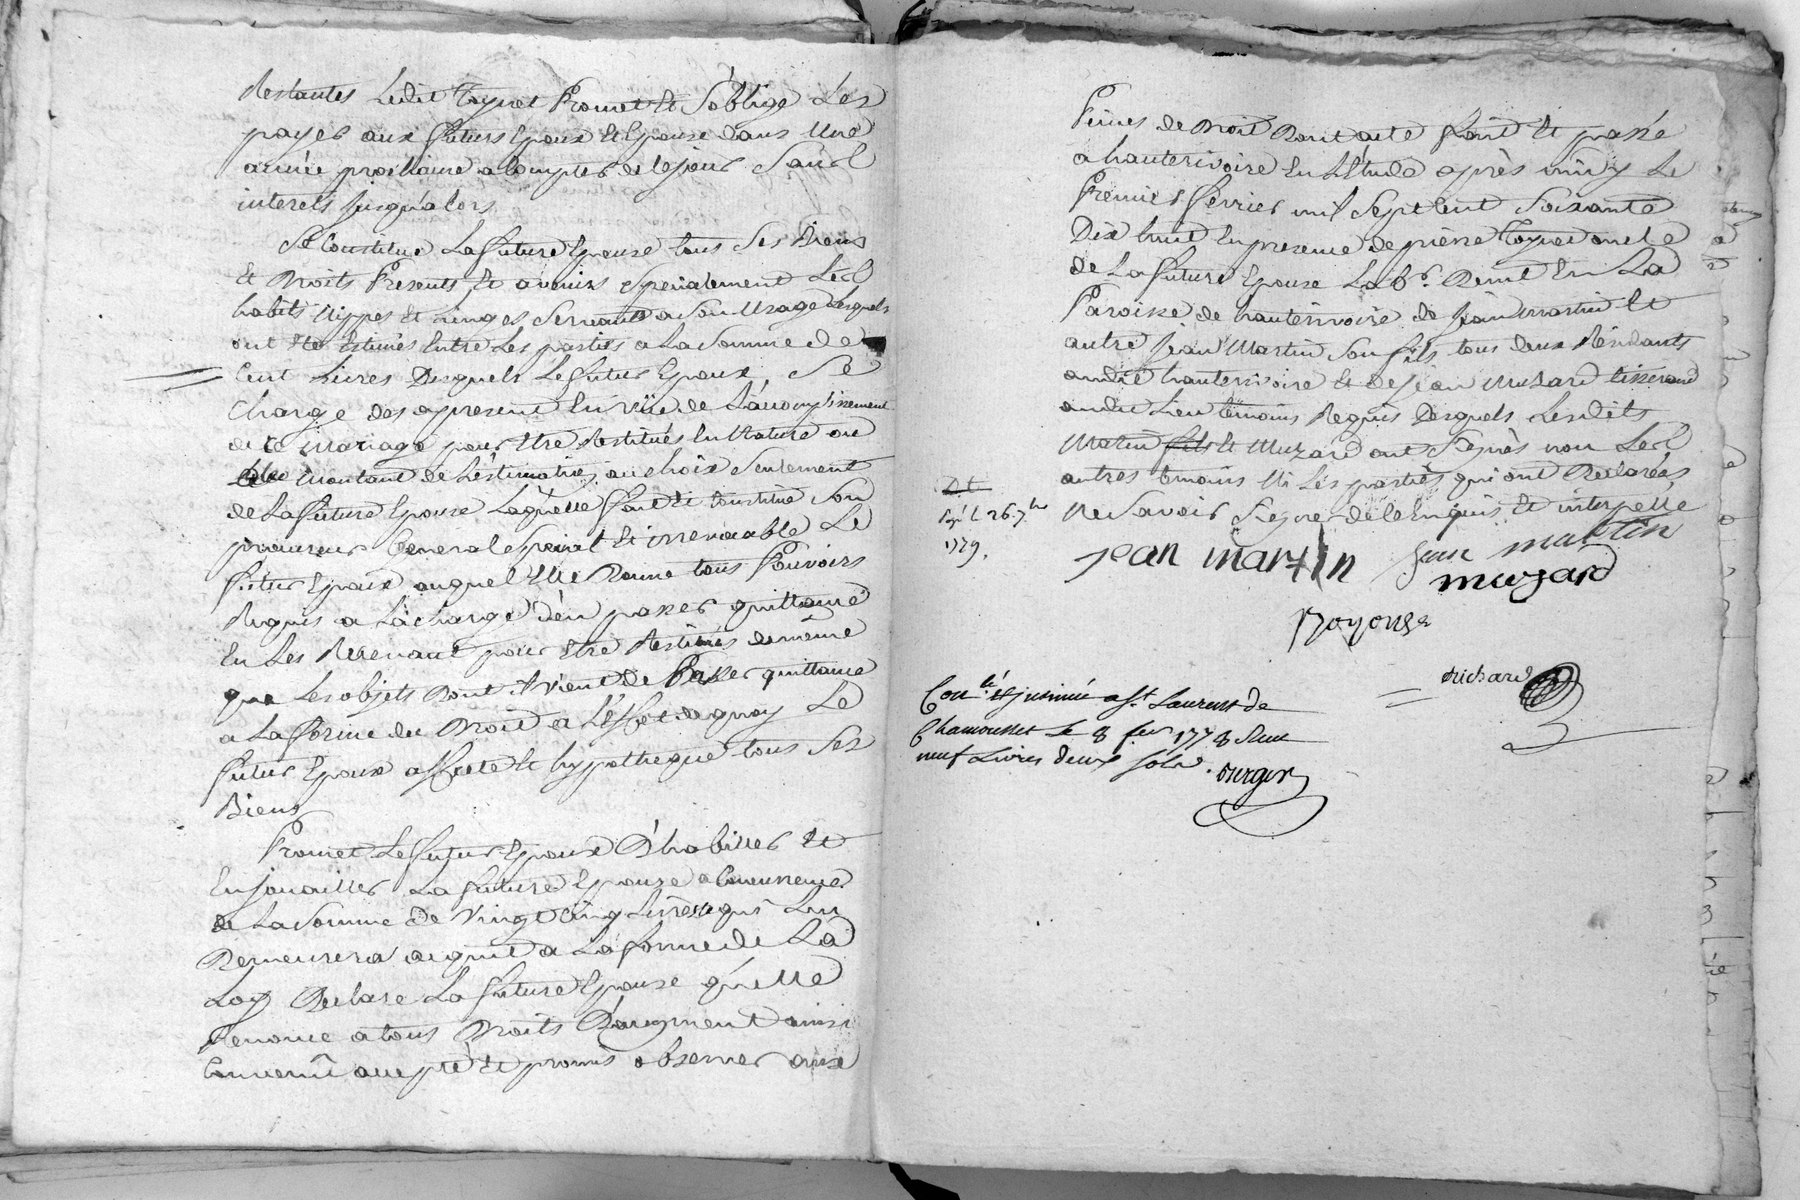 Restantes Ledit Coynet Promet et S'obblige Les
payer aux futurs Epoux et Epouse dans Une
année prochaine a Compter de Ce jour Sans
interets jusqu'alors
Se Constitue La future Epouse tous Ses Biens
Et Droits Presents et avenirs Specialement Les
habits Nippes et Linges Servants a Son Usage Lesquels
ont été Estimés Entre Les parties a La Somme de
Cent Livres Desquels Le futur Epoux Se
Charge des apresent En vüe de L'accomplissement
de Ce mariage pour Etre Restitués En Nature ou
Montant de L'estimation au choix Seulement
de La future Epouse Laquelle fait et Constitue Son
procureur General Special et irrevocable Le
futur Epoux auquel Elle Donne tous Pouvoirs
Requis a La charge d'en passer quittance
En Les Recevant pour Etre Restitués de même
que Les objets Dont il vient de Passer quittance
a La forme du Droit a L'effet de quoy Le
futur Epoux affecte et hypotheque tous Ses
Biens
Promet Le futur Epoux D'habiller Et
Enjouailler La future Epouse a Concurrence
de La Somme de Vingt Cinq Livres qui Luy
Demeurera acquis a La forme de La
Loy Declare La future Epouse qu'elle
Renonce a tous Droits D'augment ainsi
Convenû accepté et promis observer aux
Peines de Droit Dont acte fait et passé
a hauterivoire En L'Etude après midy Le
Premier fevrier mil Sept Cent Soixante
Dix huit En presence de pierre Coynet oncle
de La future Epouse Lab.r Demt En La
Paroisse de hauterivoire de Jean Martin et
autre Jean Martin Son fils tous deux Résidants
audit hauterivoire et de Jean Muzard tisserand
audit Lieu temoins Requis Desquels Lesdits
Martin Muzard ont Signés non Les
autres temoins Ni Les parties qui ont Declarées
Ne Savoir Signer de Ce Enquis et interpellé
jean martin jean martin
muzard
Noyouse
Richard
Exp.é L 26 7bre
1779.
Con.lé et jnsinué a St. Laurent de
Chamousset Le 8 fev 1778 Reçu
neuf Livres deux sols.